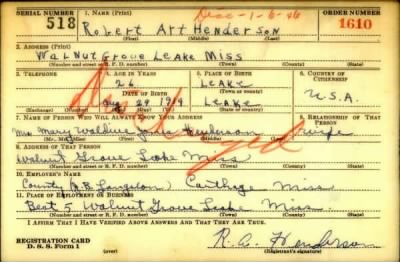 SERIAL NUMBER 1. NAME (Print) ORDER NUMBER
518 Robert Art Henderson 1610
(First) (Middle) (Last)
2. ADDRESS (Print)
Walnut Grove Leake Miss
(Number and street or R. F. D. number) (Town) (County) (State)
3. TELEPHONE 4. AGE IN YEARS 5. PLACE OF BIRTH 6. COUNTRY OF CITIZENSHIP
26 Leake
DATE OF BIRTH (Town or county)
Aug 29 1919 Leake U.S.A.
(Exchange) (Number) (Mo.) (Day) (Yr.) (State or country)
7. NAME OF PERSON WHO WILL ALWAYS KNOW YOUR ADDRESS 8. RELATIONSHIP OF THAT PERSON
Mrs Mary Henderson wife
(Mr., Mrs., Miss) (First) (Middle) (Last)
9. ADDRESS OF THAT PERSON
Walnut Grove Leake Miss
(Number and street or R. F. D. number) (Town) (County) (State)
10. EMPLOYER'S NAME
County Carthage Miss
11. PLACE OF EMPLOYMENT OR BUSINESS
Beat 5 Walnut Grove Leake Miss.
(Number and street or R. F. D. number) (Town) (County) (State)
I AFFIRM THAT I HAVE VERIFIED ABOVE ANSWERS AND THAT THEY ARE TRUE.
REGISTRATION CARD
D. S. S. Form 1 R. A. Henderson
(Registrant's signature)